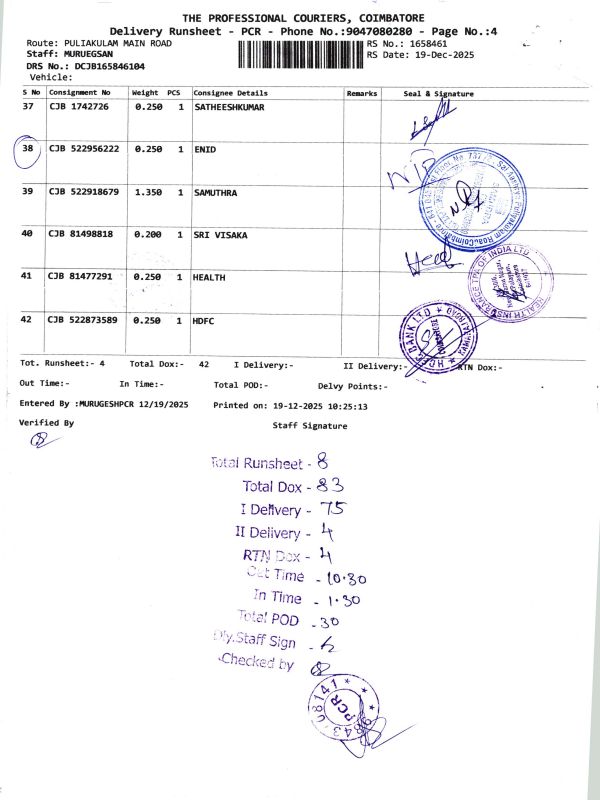 THE PROFESSIONAL COURIERS, COIMBATORE
Delivery Runsheet - PCR - Phone No.:9047080280 - Page No.:4
Route: PULIAKULAM MAIN ROAD
RS No.: 1658461
Staff: MURUEGSAN
RS Date: 19-Dec-2025
DRS No.: DCJB165846104
Vehicle:
S No Consignment No Weight PCS Consignee Details Remarks Seal & Signature
37 CJB 1742726 0.250 1 SATHEESHKUMAR
38 CJB 522956222 0.250 1 ENID
39 CJB 522918679 1.350 1 SAMUTHRA
40 CJB 81498818 0.200 1 SRI VISAKA
41 CJB 81477291 0.250 1 HEALTH
42 CJB 522873589 0.250 1 HDFC
HDFC BANK LTD
Tot. Runsheet:- 4 Total Dox:- 42 I Delivery:- II Delivery:- RTN Dox:-
Out Time:- In Time:- Total POD:- Delvy Points:-
Entered By :MURUGESHPCR 12/19/2025 Printed on: 19-12-2025 10:25:13
Verified By Staff Signature
Total Runsheet - 8
Total Dox - 83
I Delivery - 75
II Delivery - 4
RTN Dox - 4
Out Time - 10.30
In Time - 1.30
Total POD - 30
Dly.Staff Sign -
Checked by
PCR